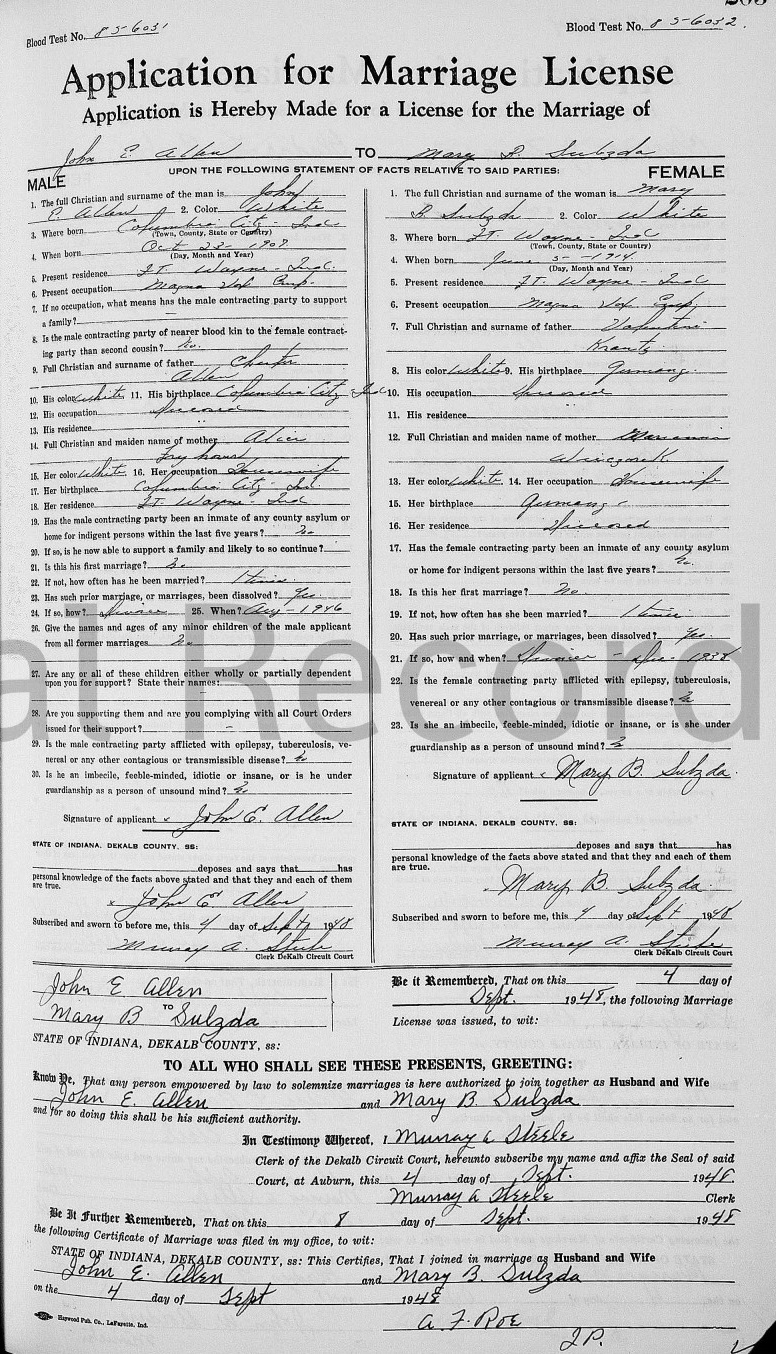 Blood Test No. 85-6031
Blood Test No. 85-6032.
Application for Marriage License
Application is Hereby Made for a License for the Marriage of
John E. Allen TO Mary B. Subzda
UPON THE FOLLOWING STATEMENT OF FACTS RELATIVE TO SAID PARTIES:
MALE
1. The full Christian and surname of the man is John
E. Allen 2. Color White
3. Where born Columbia City - Ind
(Town, County, State or Country)
4. When born Oct 23 - 1909.
(Day, Month and Year)
5. Present residence Ft. Wayne - Ind.
6. Present occupation Magna Vox Emp.
7. If no occupation, what means has the male contracting party to support
a family?
8. Is the male contracting party of nearer blood kin to the female contract-
ing party than second cousin? No.
9. Full Christian and surname of father Chester
Allen
10. His color White 11. His birthplace Columbia City - Ind
12. His occupation Diceased
13. His residence
14. Full Christian and maiden name of mother Alice
15. Her color White 16. Her occupation Housewife
17. Her birthplace Columbia City - Ind.
18. Her residence Ft. Wayne - Ind
19. Has the male contracting party been an inmate of any county asylum or
home for indigent persons within the last five years? No
20. If so, is he now able to support a family and likely to so continue?
21. Is this his first marriage? No
22. If not, how often has he been married? 1 time
23. Has such prior marriage, or marriages, been dissolved? Yes
24. If so, how? Divorce 25. When? Aug - 1946
26. Give the names and ages of any minor children of the male applicant
from all former marriages No
27. Are any or all of these children either wholly or partially dependent
upon you for support? State their names:
28. Are you supporting them and are you complying with all Court Orders
issued for their support?
29. Is the male contracting party afflicted with epilepsy, tuberculosis, ve-
nereal or any other contagious or transmissible disease? No
30. Is he an imbecile, feeble-minded, idiotic or insane, or is he under
guardianship as a person of unsound mind? No
Signature of applicant x John E. Allen
STATE OF INDIANA, DEKALB COUNTY, SS:
deposes and says that has
personal knowledge of the facts above stated and that they and each of them
are true.
x John E. Allen
Subscribed and sworn to before me, this 4 day of Sept 1948
Murray A. Steele
Clerk DeKalb Circuit Court
FEMALE
1. The full Christian and surname of the woman is Mary
B. Subzda 2. Color White
3. Where born Ft. Wayne - Ind
(Town, County, State or Country)
4. When born June 5 - 1914.
(Day, Month and Year)
5. Present residence Ft. Wayne - Ind
6. Present occupation Magna Vox Emp.
7. Full Christian and surname of father Valentine
Krantz
8. His color White 9. His birthplace Germany.
10. His occupation Diceased
11. His residence
12. Full Christian and maiden name of mother
Wieczorek
13. Her color White 14. Her occupation Housewife
15. Her birthplace Germany
16. Her residence Diceased
17. Has the female contracting party been an inmate of any county asylum
or home for indigent persons within the last five years? No.
18. Is this her first marriage? No
19. If not, how often has she been married? 1 time
20. Has such prior marriage, or marriages, been dissolved? Yes
21. If so, how and when? Divorce - Dec - 1938
22. Is the female contracting party afflicted with epilepsy, tuberculosis,
venereal or any other contagious or transmissible disease? No
23. Is she an imbecile, feeble-minded, idiotic or insane, or is she under
guardianship as a person of unsound mind? No
Signature of applicant x Mary B. Subzda.
STATE OF INDIANA, DEKALB COUNTY, SS:
deposes and says that has
personal knowledge of the facts above stated and that they and each of them
are true.
Mary B. Subzda.
Subscribed and sworn to before me, this 4 day of Sept 1948
Murray A. Steele
Clerk DeKalb Circuit Court
al Record
John E Allen
TO
Mary B Subzda
STATE OF INDIANA, DEKALB COUNTY, ss:
Be it Remembered, That on this 4 day of
Sept. 1948, the following Marriage
License was issued, to wit:
TO ALL WHO SHALL SEE THESE PRESENTS, GREETING:
Know Ye, That any person empowered by law to solemnize marriages is here authorized to join together as Husband and Wife
John E. Allen and Mary B. Subzda
and for so doing this shall be his sufficient authority.
In Testimony Whereof, I Murray A Steele
Clerk of the Dekalb Circuit Court, hereunto subscribe my name and affix the Seal of said
Court, at Auburn, this 4 day of Sept. 1948.
Murray A Steele Clerk
Be It Further Remembered, That on this 8 day of Sept. 1948
the following Certificate of Marriage was filed in my office, to wit:
STATE OF INDIANA, DEKALB COUNTY, ss: This Certifies, That I joined in marriage as Husband and Wife
John E. Allen and Mary B. Subzda
on the 4 day of Sept 1948
A. F. Roe
J.P.
Haywood Pub. Co., LaFayette, Ind.